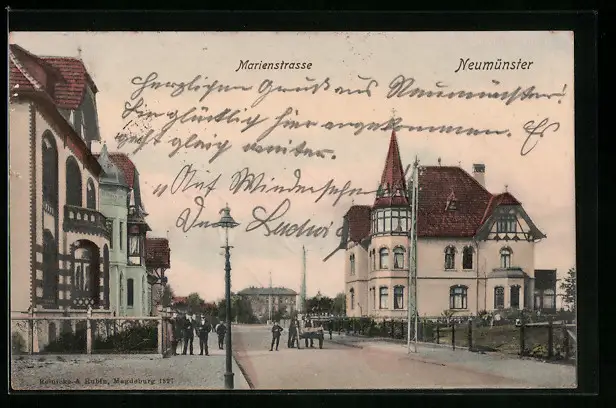 Marienstrasse
Neumünster
Herzlichen Gruß aus Neumünster.
Bin glücklich hier angekommen. Es
geht gleich weiter.
"Auf Wiedersehn"
Dein Ludwig
Reinicke & Rubin, Magdeburg 1897